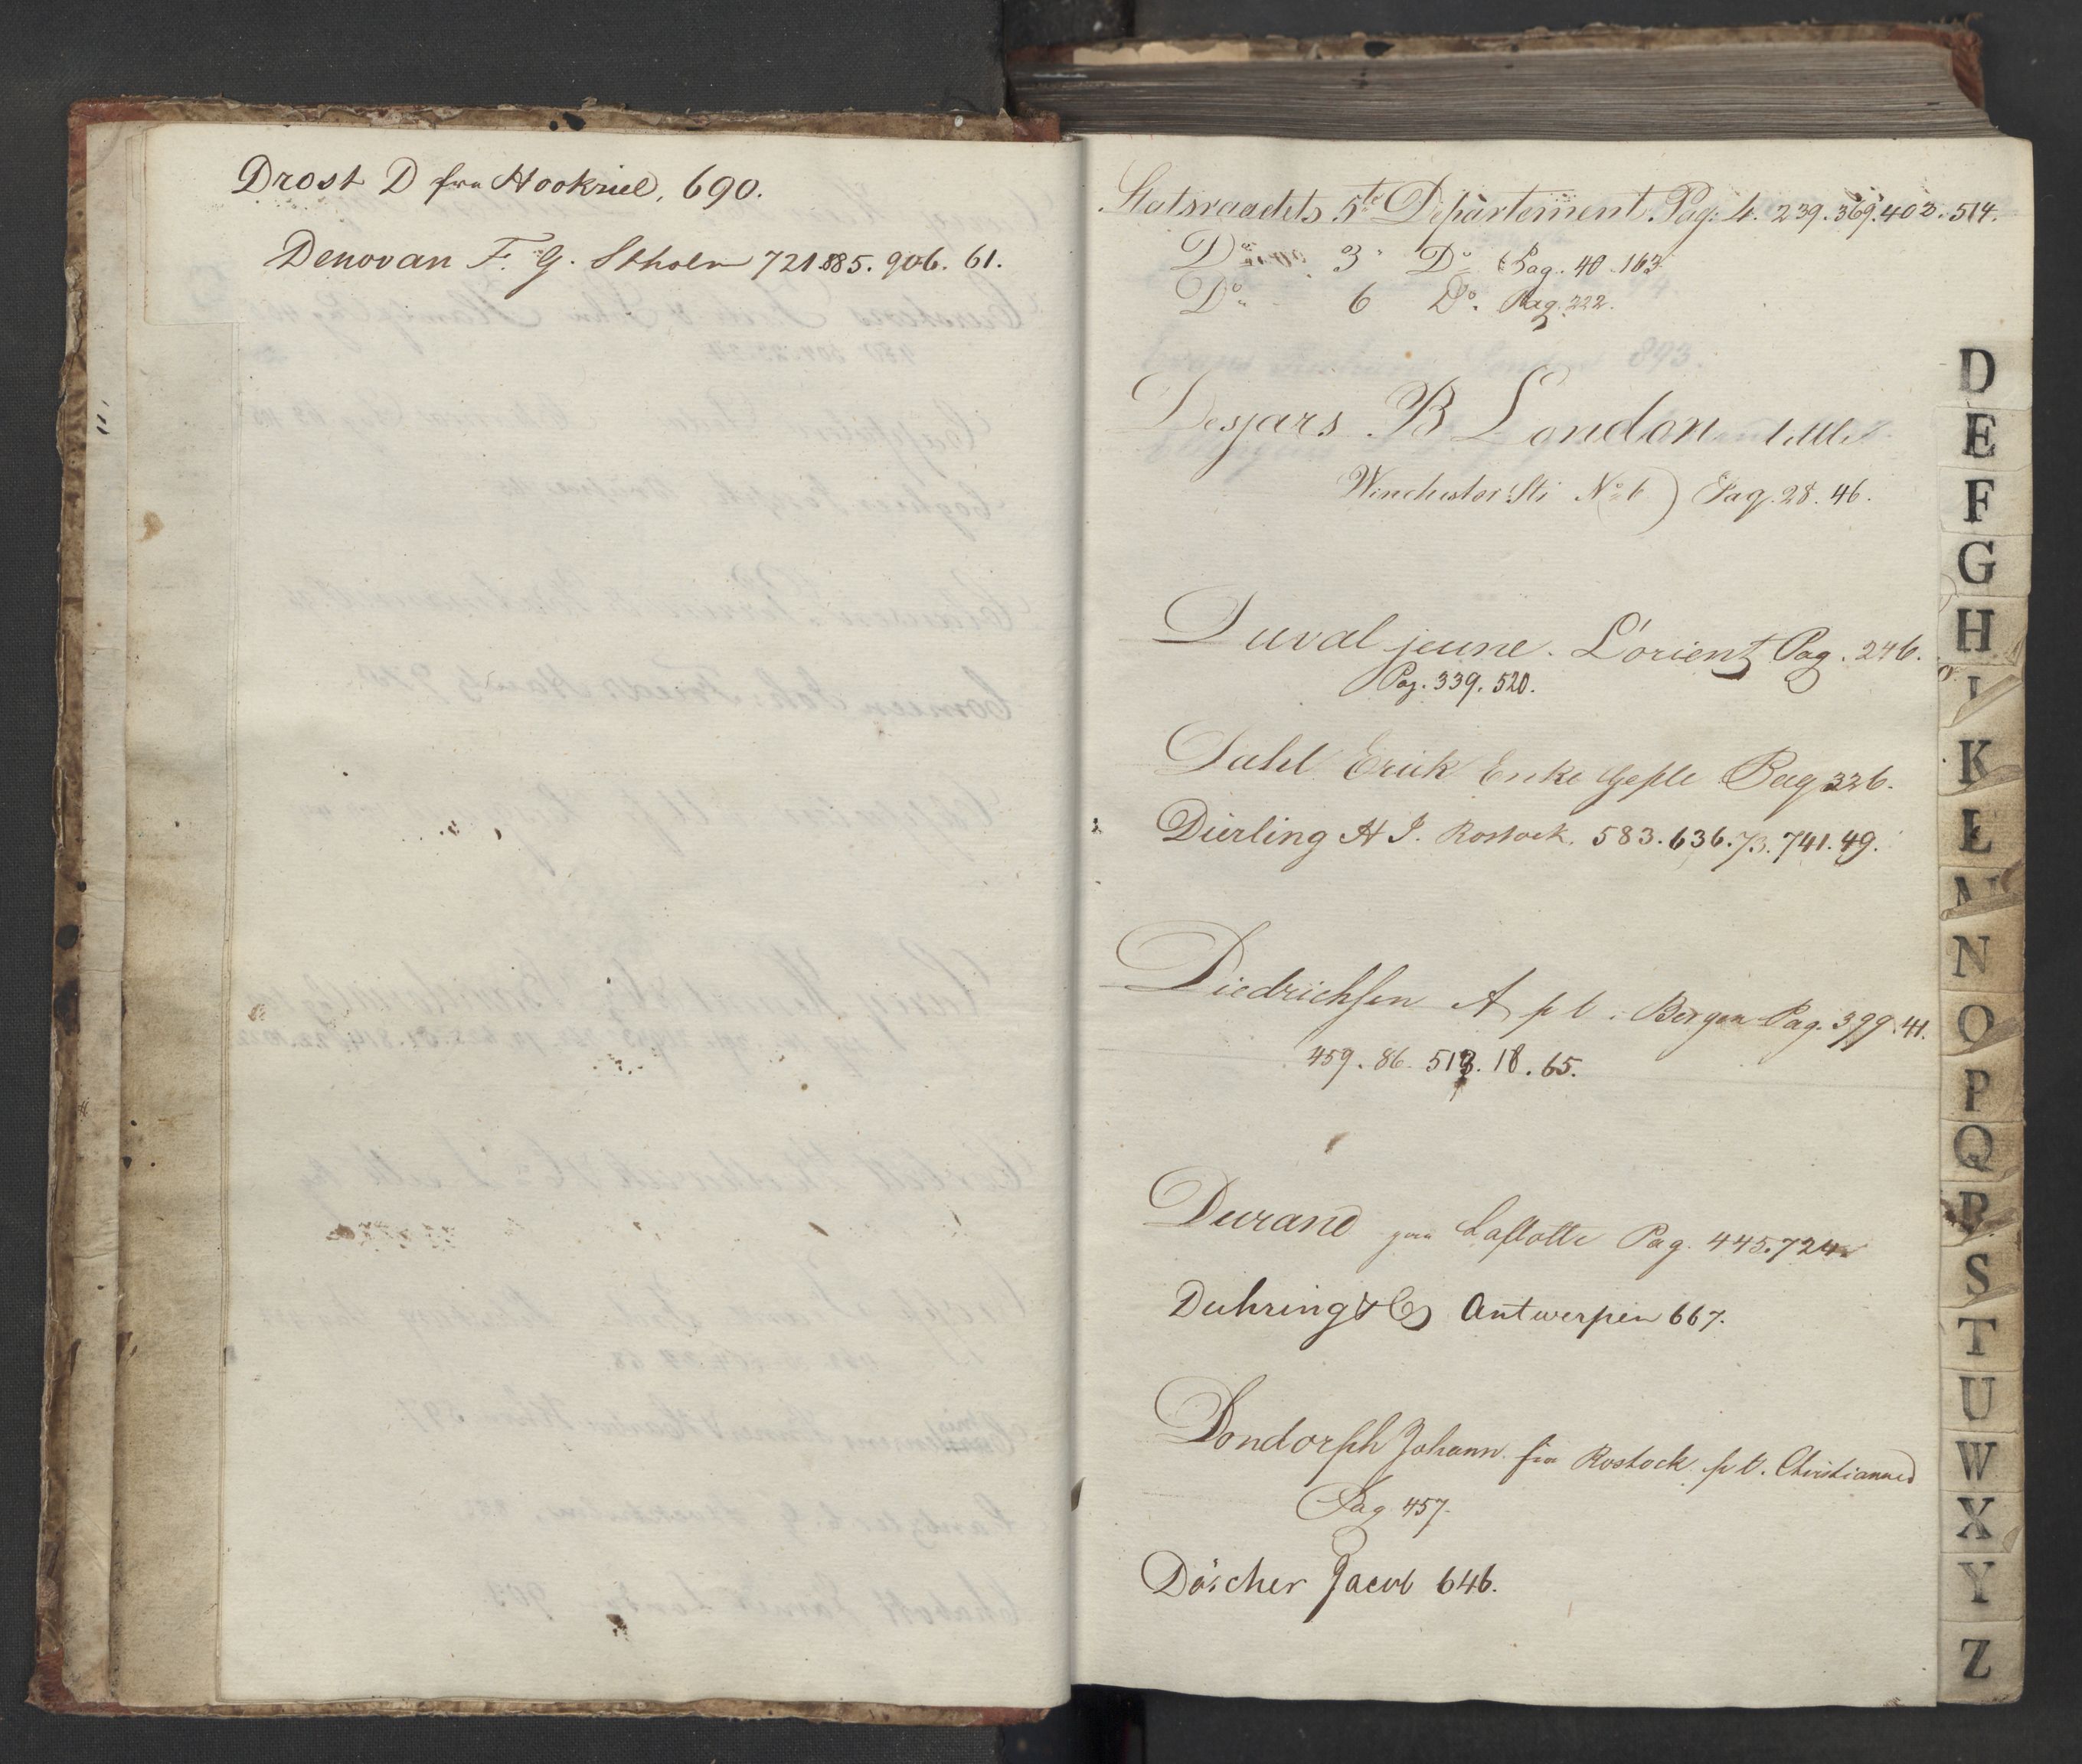 Drost D fra Hookriel, 690.
Denovan F. G. Stholm 721.885.906.61.
Statsraadets 5te Departement. Pag: 4. 239.369.403.514.
Do 3 Do Pag. 40.163.
Do 6 Do. Pag. 222.
Desjars B London
Winchester Str No 6) Pag. 28. 46.
Duval jeune. L'orient Pag. 246.
Pag. 339. 520.
Dahl Erick Enke Gefle Pag 326.
Dierling H J. Rostock. 583.636.73.741.49.
Diedrichsen A p t. Bergen Pag. 399.41.
459. 86. 513. 18. 65.
Durand Pag. 445.724
Duhring & Co Antwerpen 667.
Dondorph Johann fra Rostock p t. Christiansd
Pag 457.
Döscher Jacob 646.
D
E
F
G
H
I
K
L
M
N
O
P
Q
R
S
T
U
W
X
Y
Z